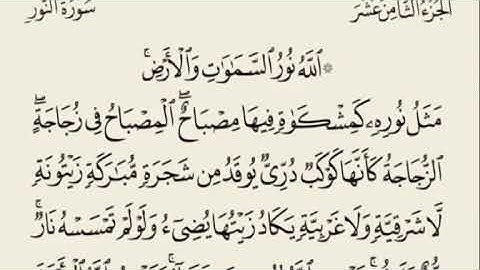 الجزء الثامن عشر
سورة النور
۞ٱللَّهُ نُورُ ٱلسَّمَٰوَٰتِ وَٱلْأَرْضِۚ
مَثَلُ نُورِهِۦ كَمِشْكَوٰةٍ فِيهَا مِصْبَاحٌۖ ٱلْمِصْبَاحُ فِى زُجَاجَةٍۖ
ٱلزُّجَاجَةُ كَأَنَّهَا كَوْكَبٌ دُرِّىٌّ يُوقَدُ مِن شَجَرَةٍ مُّبَٰرَكَةٍ زَيْتُونَةٍ
لَّا شَرْقِيَّةٍ وَلَا غَرْبِيَّةٍ يَكَادُ زَيْتُهَا يُضِىٓءُ وَلَوْ لَمْ تَمْسَسْهُ نَارٌۚ